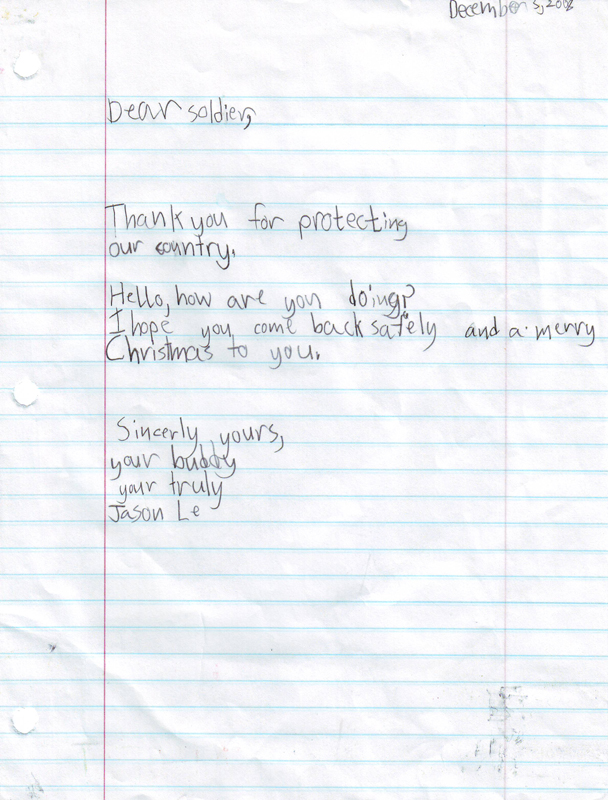 December 5, 
Dear soldier,
Thank you for protecting
our country.
Hello, how are you doing?
I hope you come back safely and a merry
Christmas to you.
Sincerly yours,
your buddy
your truly
Jason Le